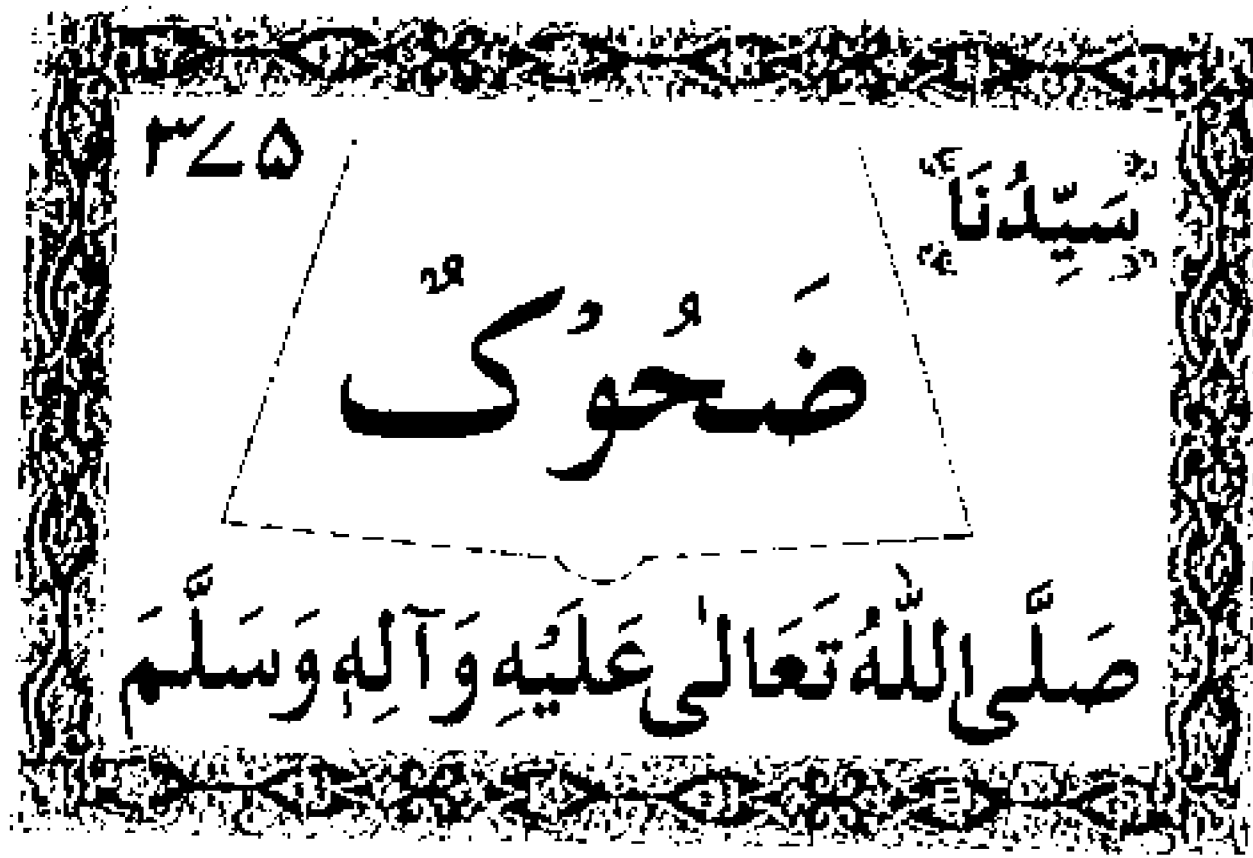 سَيِّدُنَا ۳۷۵
ضَحُوْکٌ
صَلَّی اللّٰهُ تَعَالٰی عَلَیْهِ وَآلِهٖ وَسَلَّمَ